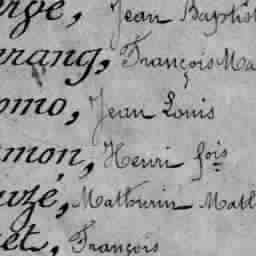 erge, Jean Baptist
erang, François Ma
omo, Jean Louis
mon, Henri fois
uzé, Mathurin Math
et, François